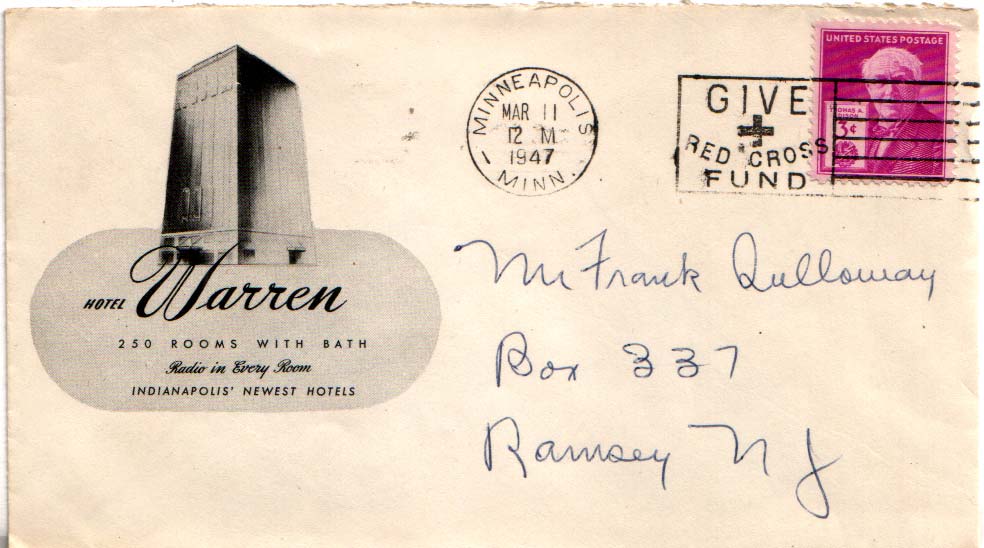 HOTEL Warren
250 ROOMS WITH BATH
Radio in Every Room
INDIANAPOLIS' NEWEST HOTELS
MINNEAPOLIS
MAR 11
12 M
1947
MINN.
GIVE
RED CROSS
FUND
UNITED STATES POSTAGE
THOMAS A.
EDISON
3¢
Mr Frank Qulloway
Box 337
Ramsey N J